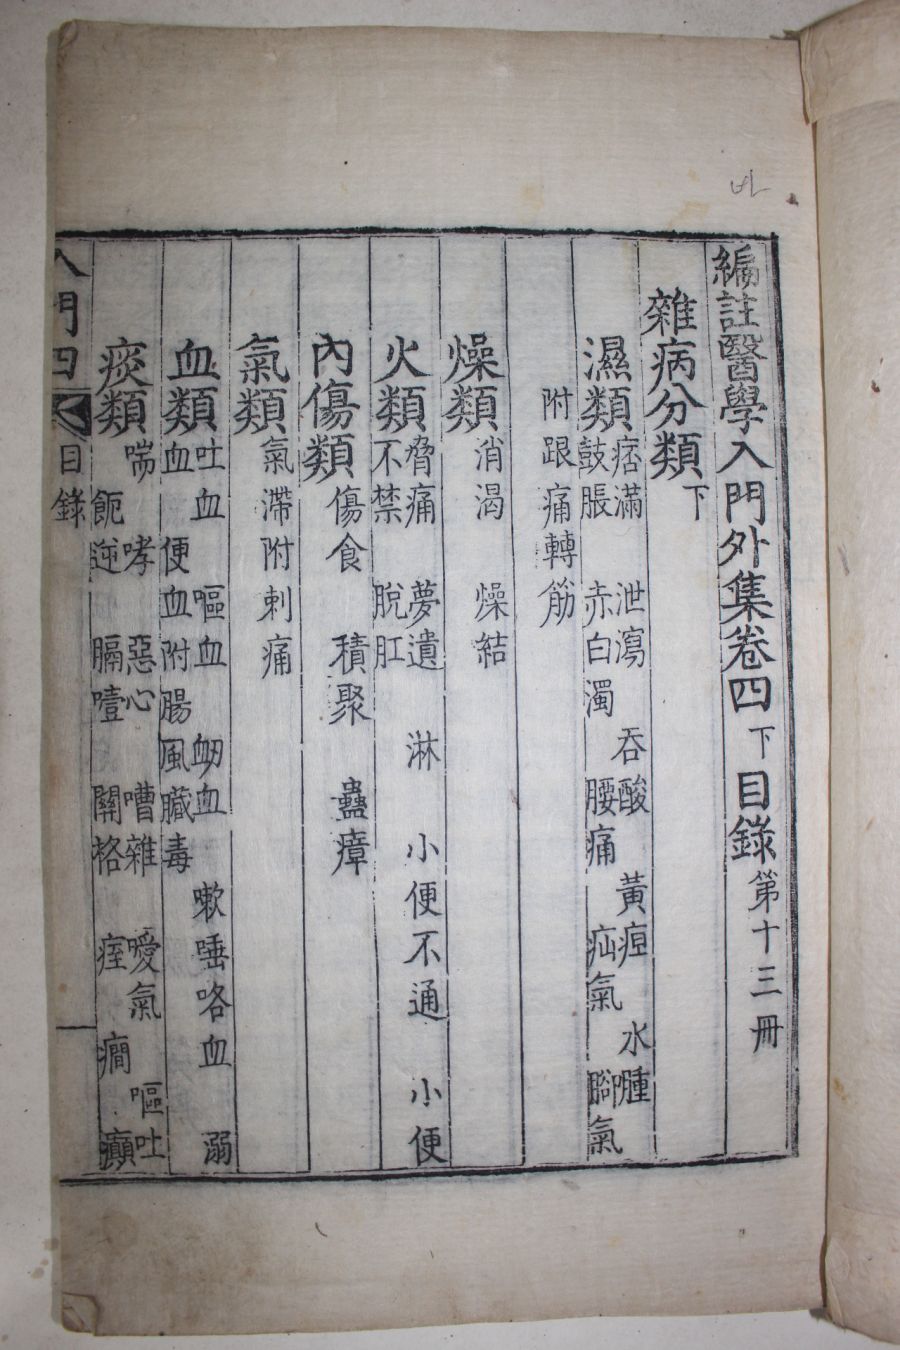 編註醫學入門外集卷四下目錄第十三冊
雜病分類下
濕類 痞滿 泄瀉 吞酸 黃疸 水腫
鼓脹 赤白濁 腰痛 疝氣 腳氣
附跟痛轉筋
燥類 消渴 燥結
火類 脅痛 夢遺 淋 小便不通 小便
不禁 脫肛
內傷類 傷食 積聚 蠱瘴
氣類 氣滯附刺痛
血類 吐血 嘔血 衂血 嗽唾咯血 溺
血 便血附腸風臟毒
痰類 喘 哮 惡心 嘈雜 噯氣 嘔吐
呃逆 膈噎 關格 痓 癎 癲
入門四 目錄 一